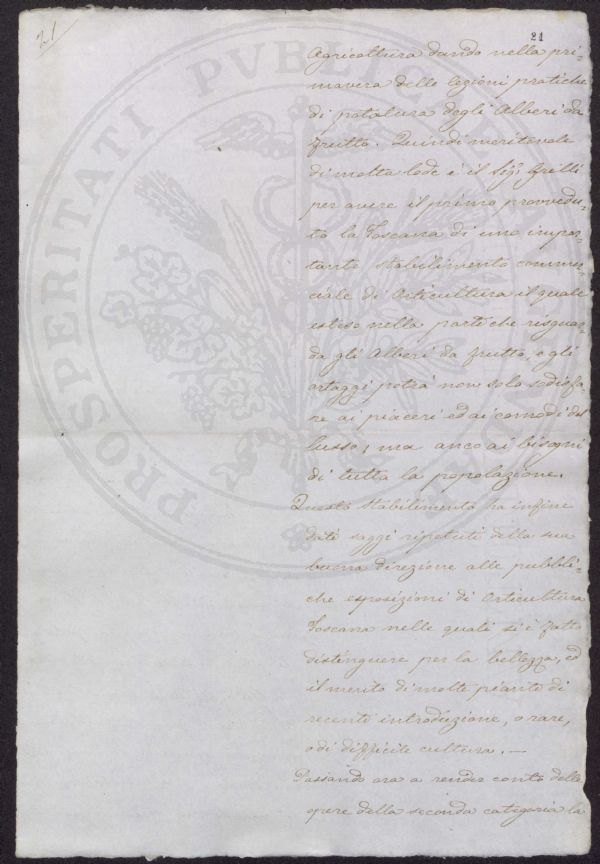 21
21
Agricoltura dando nella pri-
mavera delle lezioni pratiche
di potatura degli Alberi da
frutto. Quindi meritevole
di molta lode è il Sigr Grilli
per avere il primo provvedu-
to la Toscana di uno impor-
tante stabilimento commer-
ciale di Orticultura il quale
esteso nella parte che risguar-
da gli Alberi da frutto, e gli
ortaggi potrà non solo sodisfa
re ai piaceri ed ai comodi del
lusso, ma anco ai bisogni
di tutta la popolazione.
Questo stabilimento ha infine
dati saggi ripetuti della sua
buona direzione alle pubbli-
che esposizioni di Orticultura
Toscana nelle quali si è fatto
distinguere per la bellezza, ed
il merito di molte piante di
recente introduzione, o rare,
o di difficile cultura. —
Passando ora a render conto delle
opere della seconda categoria la
PROSPERITATI PVBLICAE